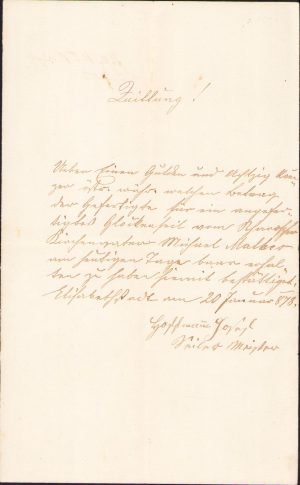 Quittung!
Ueber Einen Gulden und Achtzig Kreu-
zer östr. währ. welchen Betrag
der Gefertigte für ein angefer-
tigtes Glockenseil vom
Kirchenvater Michael
am heutigen Tage baar erhal-
ten zu haben hiemit bestättiget.
Elisabethstadt am 20 Januar 878.
Hoffmann Josef
Seiler Meister